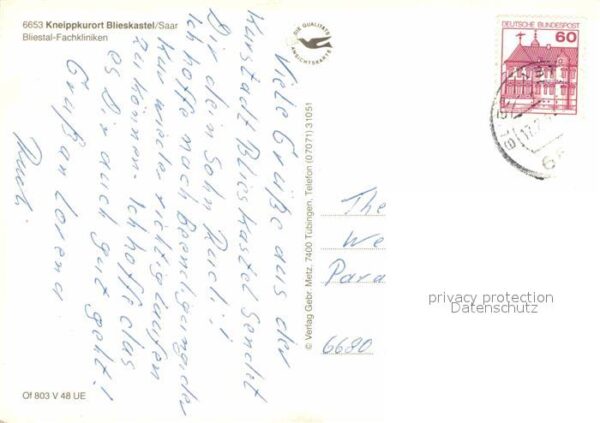 6653 Kneippkurort Blieskastel/Saar
Bliestal-Fachkliniken
DIE QUALITÄTS
ANSICHTSKARTE
DEUTSCHE BUNDESPOST
60
Viele Grüße aus der
Kurstadt Blieskastel Sendet
Dir dein Sohn Rudi!
Ich hoffe nach Beendigung der
Kur wieder richtig laufen
zu können. Ich hoffe das
es Dir auch gut geht!
Gruß an Lorena
Rudi
© Verlag Gebr. Metz, 7400 Tübingen, Telefon (07071) 31051
The
We
Para
6690
privacy protection
Datenschutz
Of 803 V 48 UE